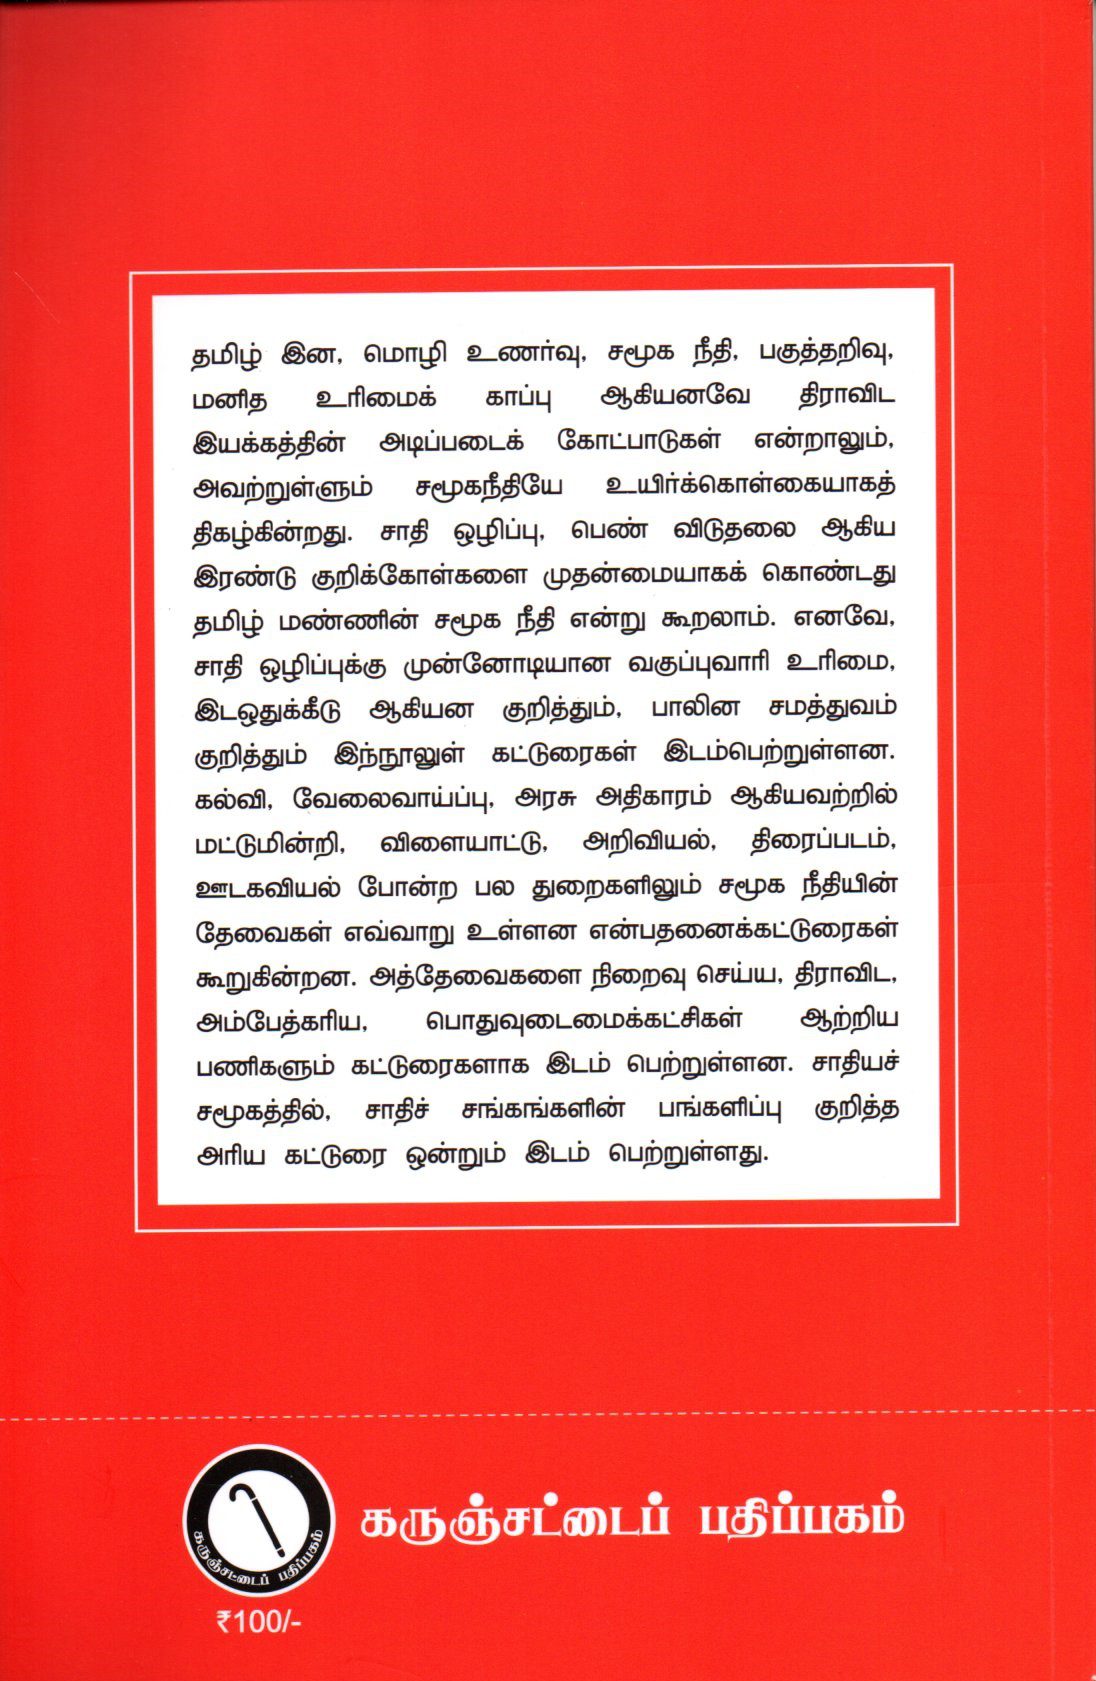 தமிழ் இன, மொழி உணர்வு, சமூக நீதி, பகுத்தறிவு,
மனித உரிமைக் காப்பு ஆகியனவே திராவிட
இயக்கத்தின் அடிப்படைக் கோட்பாடுகள் என்றாலும்,
அவற்றுள்ளும் சமூகநீதியே உயிர்க்கொள்கையாகத்
திகழ்கின்றது. சாதி ஒழிப்பு, பெண் விடுதலை ஆகிய
இரண்டு குறிக்கோள்களை முதன்மையாகக் கொண்டது
தமிழ் மண்ணின் சமூக நீதி என்று கூறலாம். எனவே,
சாதி ஒழிப்புக்கு முன்னோடியான வகுப்புவாரி உரிமை,
இடஒதுக்கீடு ஆகியன குறித்தும், பாலின சமத்துவம்
குறித்தும் இந்நூலுள் கட்டுரைகள் இடம்பெற்றுள்ளன.
கல்வி, வேலைவாய்ப்பு, அரசு அதிகாரம் ஆகியவற்றில்
மட்டுமின்றி, விளையாட்டு, அறிவியல், திரைப்படம்,
ஊடகவியல் போன்ற பல துறைகளிலும் சமூக நீதியின்
தேவைகள் எவ்வாறு உள்ளன என்பதனைக்கட்டுரைகள்
கூறுகின்றன. அத்தேவைகளை நிறைவு செய்ய, திராவிட,
அம்பேத்கரிய, பொதுவுடைமைக்கட்சிகள் ஆற்றிய
பணிகளும் கட்டுரைகளாக இடம் பெற்றுள்ளன. சாதியச்
சமூகத்தில், சாதிச் சங்கங்களின் பங்களிப்பு குறித்த
அரிய கட்டுரை ஒன்றும் இடம் பெற்றுள்ளது.
கருஞ்சட்டைப் பதிப்பகம்
கருஞ்சட்டைப் பதிப்பகம்
₹100/-